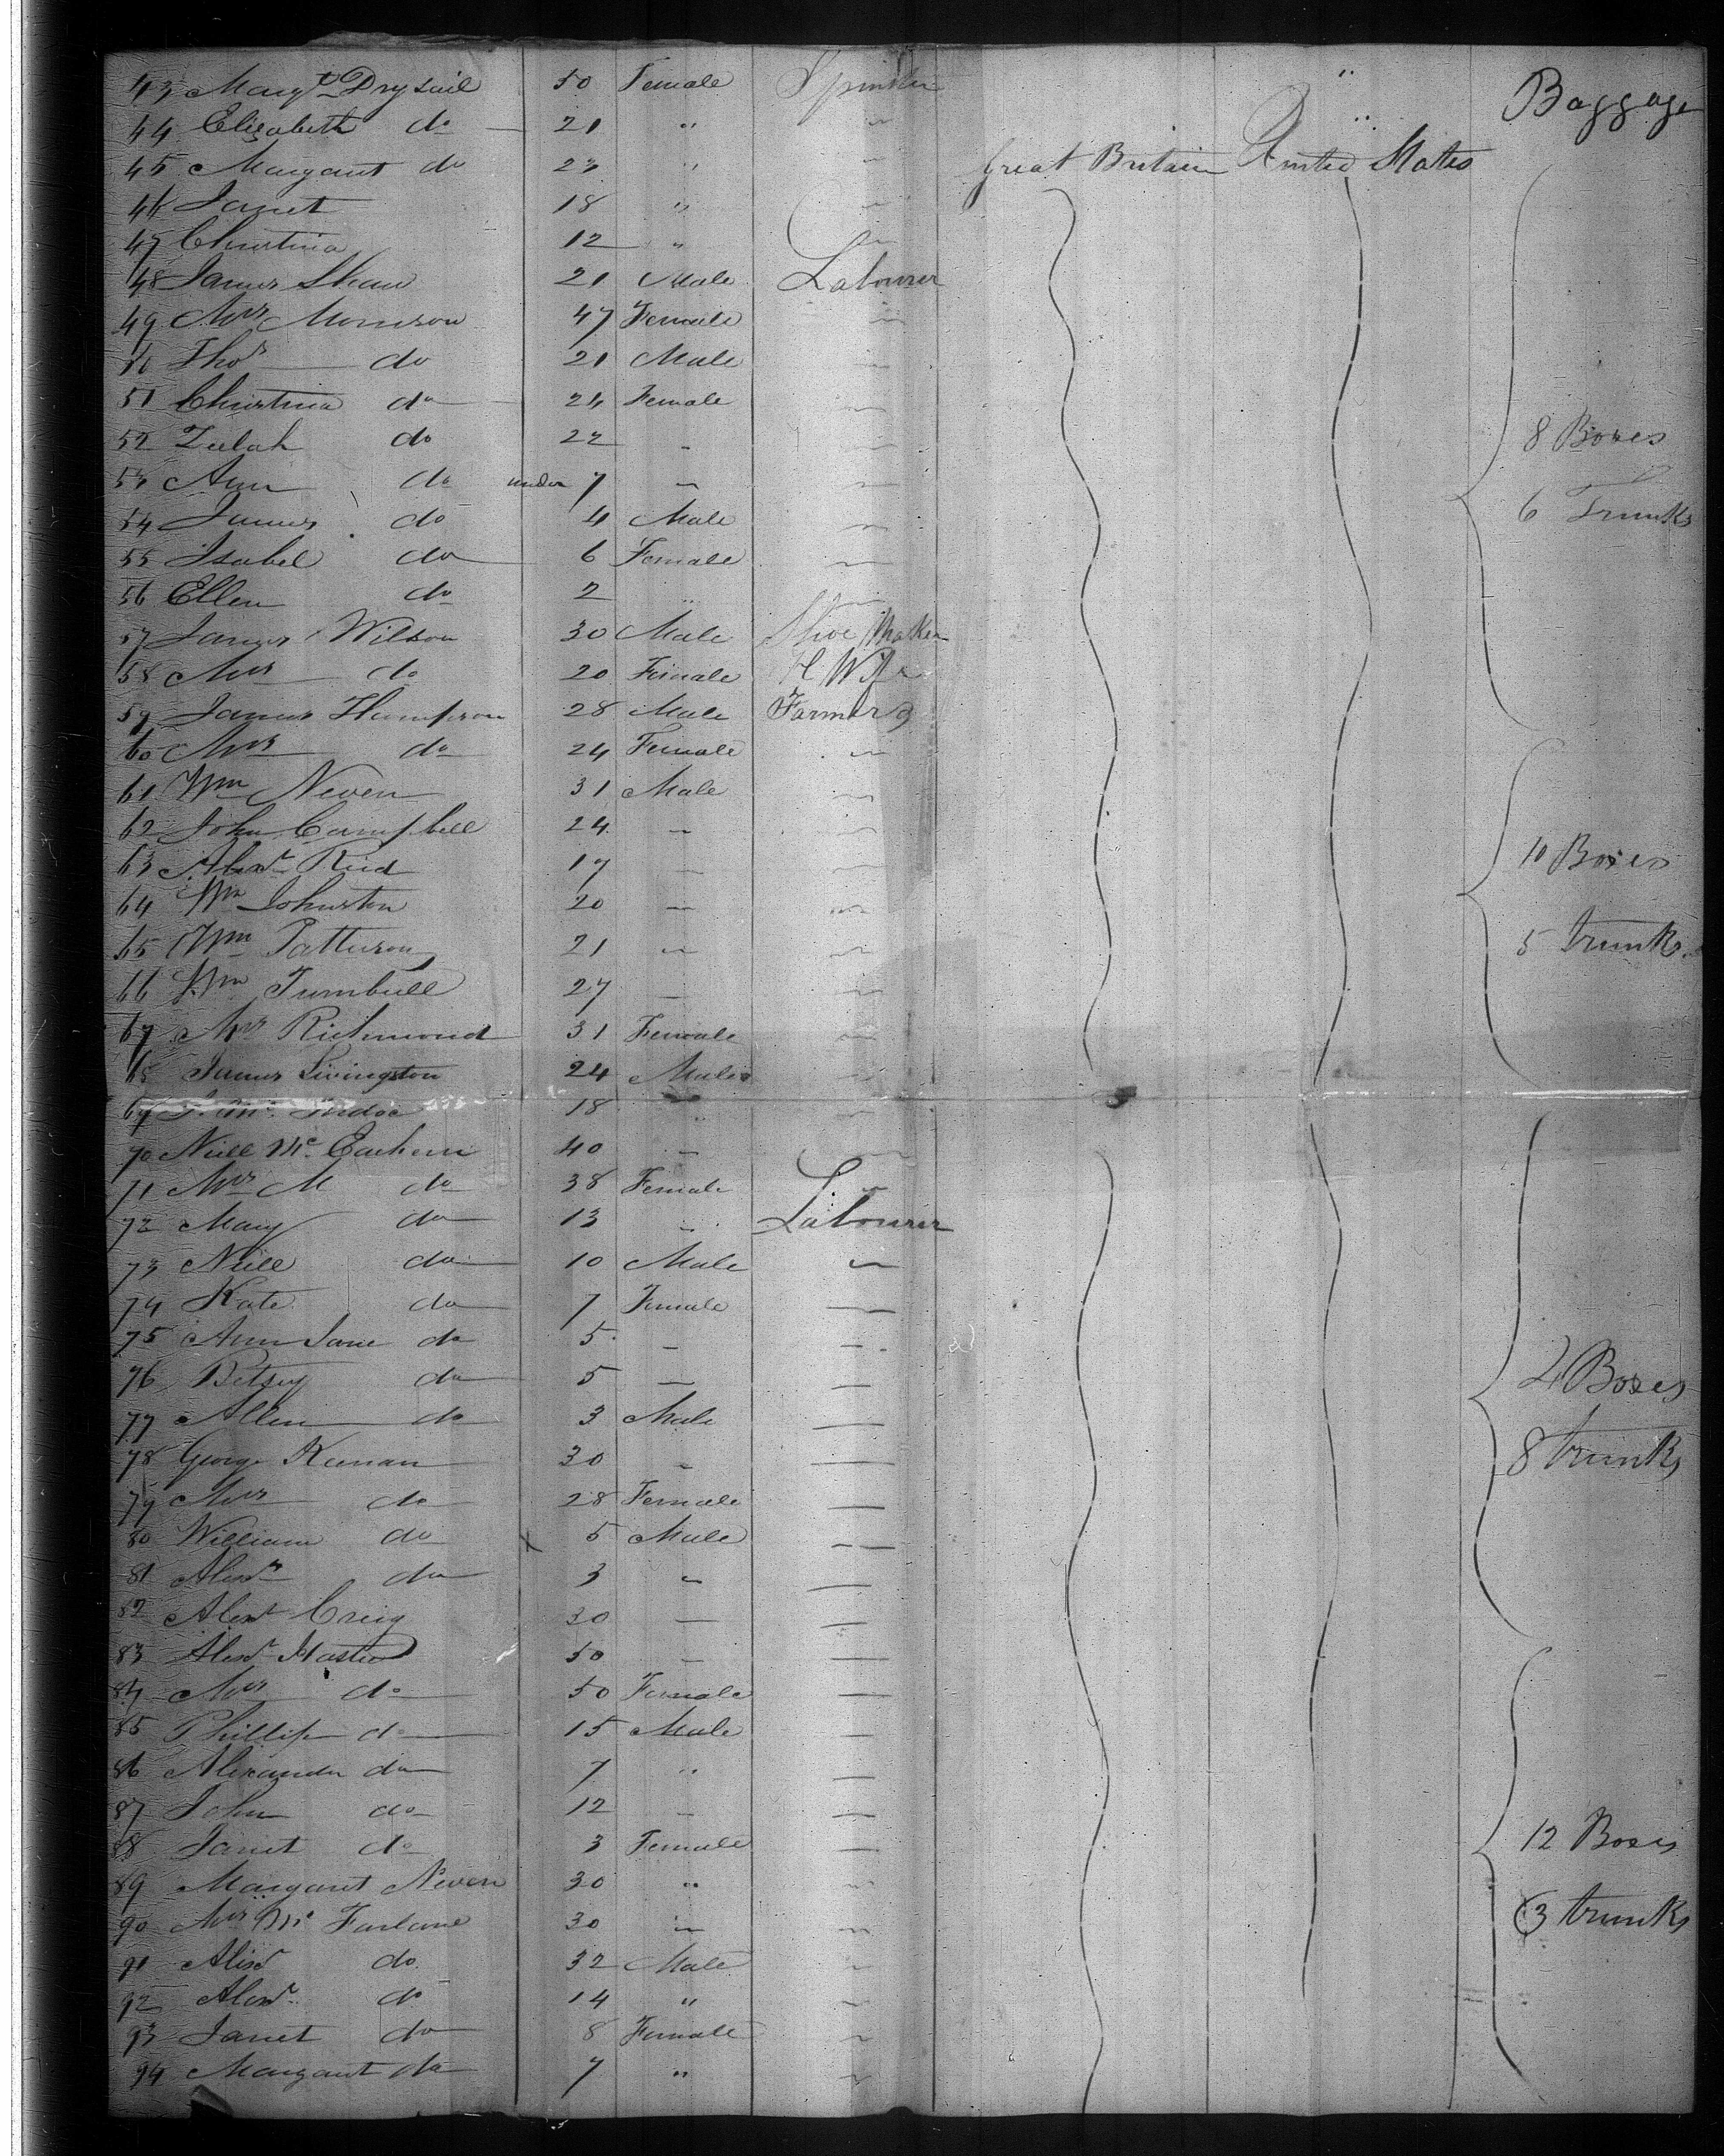 Baggage
43 Margt Drysdil 50 Female Spinster "
44 Elizabeth do 21 " " "
45 Margaret do 23 " " Great Britain United States
46 Janet 18 " "
47 Christina 12 " "
48 James Shaw 21 Male Labourer
49 Mrs Morrison 47 Female "
50 Thos do 21 Male "
51 Christina do 24 Female "
52 do 22 " " 8 Boxes
53 Ann do under 7 " "
54 James do 4 Male " 6 Trunks
55 Isabel do 6 Female "
56 Ellen do 2 " "
57 James Wilson 30 Male Shoe Maker
58 Mrs do 20 Female H Wife
59 James Thompson 28 Male Farmer
60 Mrs do 24 Female "
61 Wm Neven 31 Male "
62 John Campbell 24 " "
63 Alexr Reid 17 " " 10 Boxes
64 Wm Johnston 20 " "
65 Wm Patterson 21 " " 5 trunks
66 Wm Turnbull 27 " "
67 Mrs Richmond 31 Female "
68 James Livingston 24 Male "
69 18 " "
70 Neill Mc Eachern 40 " "
71 Mrs M do 38 Female "
72 Mary do 13 " Labourer
73 Neill do 10 Male "
74 Kate do 7 Female "
75 Ann Jane do 5 " "
76 Betsey do 5 " " 4 Boxes
77 Allen do 3 Male "
78 George Keenan 30 " " 8 trunks
79 Mrs do 28 Female "
80 William do x 5 Male "
81 Alexr do 3 " "
82 Alexr Creig 30 " "
83 Alexr 50 " "
84 Mrs do 50 Female "
85 Phillip do 15 Male "
86 Alexander do 7 " "
87 John do 12 " "
88 Janet do 3 Female " 12 Boxes
89 Margaret Neven 30 " "
90 Mrs Mc Farlane 30 " " 3 trunks
91 Alexr do 32 Male "
92 Alexr do 14 " "
93 Janet do 8 Female "
94 Margaret do 7 " "